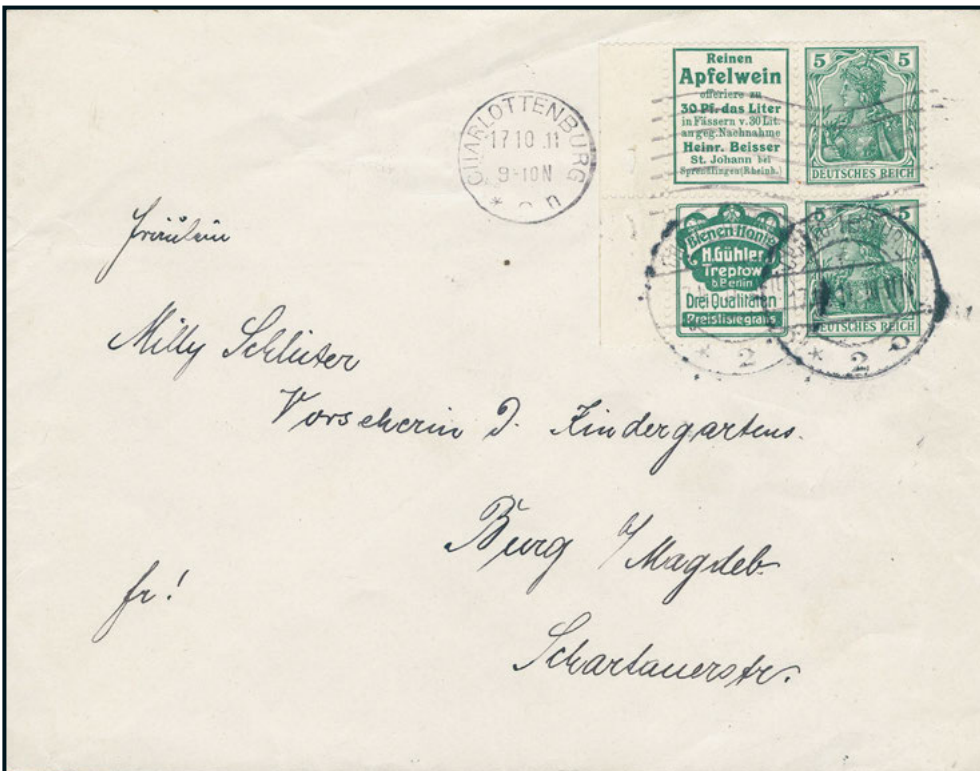 CHARLOTTENBURG
17.10.11
9-10N
Reinen
Apfelwein
offeriere zu
30 Pf. das Liter
in Fässern v. 30 Lit.
an geg. Nachnahme
Heinr. Beisser
St. Johann bei
Sprendlingen (Rheinh.)
5 5
DEUTSCHES REICH
Bienen-Honig
H. Gühler
Treptow
b Berlin
Drei Qualitäten
Preisliste gratis
5 5
DEUTSCHES REICH
* 2
* 2
Fräulein
Milly Schlüter
Vorsteherin d. Kindergartens.
Burg b/Magdeb.
fr!
Schartauerstr.